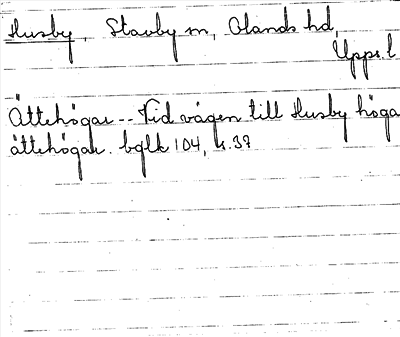 Husby, Stavby sn, Olands hd,
Uppl.
Ättehögar -- Vid vägen till Husby höga
ättehögar. bglk 104, s. 37